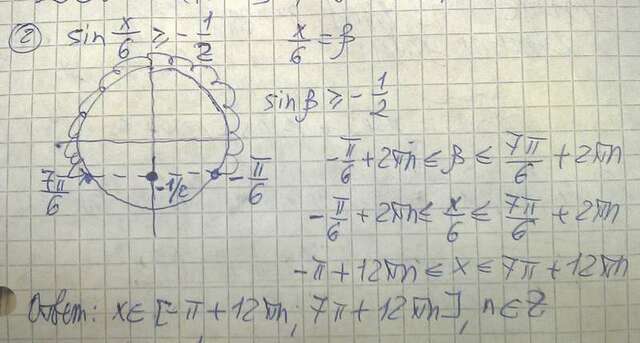 ② sin x/6 ≥ -1/2    x/6 = β
sin β ≥ -1/2
-π/6 + 2πn ≤ β ≤ 7π/6 + 2πn
7π/6    -1/2    -π/6
-π/6 + 2πn ≤ x/6 ≤ 7π/6 + 2πn
-π + 12πn ≤ x ≤ 7π + 12πn
Ответ: x ∈ [-π + 12πn; 7π + 12πn], n ∈ Z